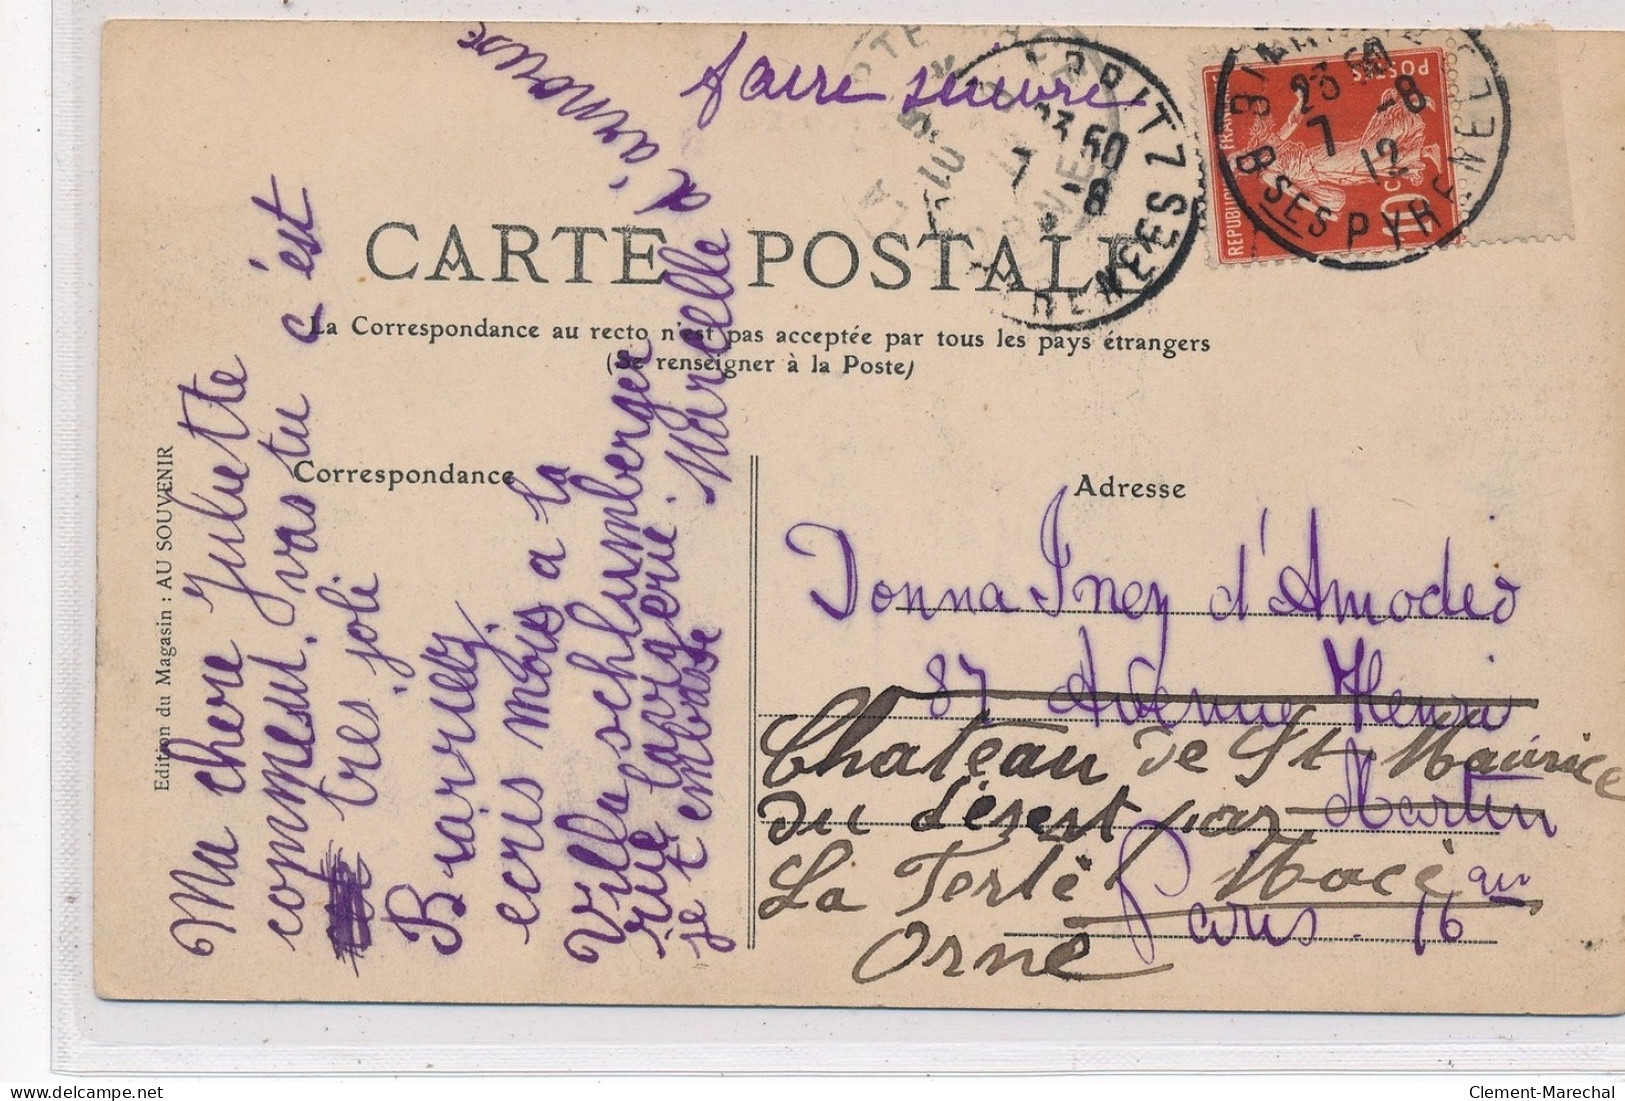 faire suivre
CARTE POSTALE
La Correspondance au recto n'est pas acceptée par tous les pays étrangers
(Se renseigner à la Poste)
Correspondance
Adresse
Edition du Magasin : AU SOUVENIR
Ma chere Juliette
comment vas tu c'est
tres joli
Biarritz.
ecris mois a la
Villa schlumberger
rue lavigerie.
je t embrasse Marcelle d'arnouse
Donna Inez d'Amodio
87 Avenue Henri
Martin
Paris. 16
Chateau de St Maurice
du désert par
La Ferté Macé
Orne
REPUBLIQUE FRANÇAISE
POSTES
10c
23 50
7 -8
12
BSES PYRENEES
23 50
7 -8
PYRENEES
Clement-Marechal